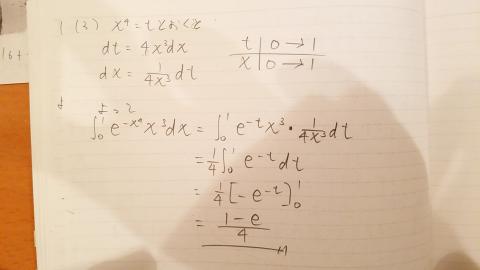 1 (3) x⁴=tとおくと
dt = 4x³dx
t | 0 → 1
dx = 1/4x³ dt
x | 0 → 1
よって
∫₀¹ e^-x⁴ x³dx = ∫₀¹ e^-t x³ • 1/4x³ dt
= 1/4 ∫₀¹ e^-t dt
= 1/4 [-e^-t]₀¹
= 1-e/4